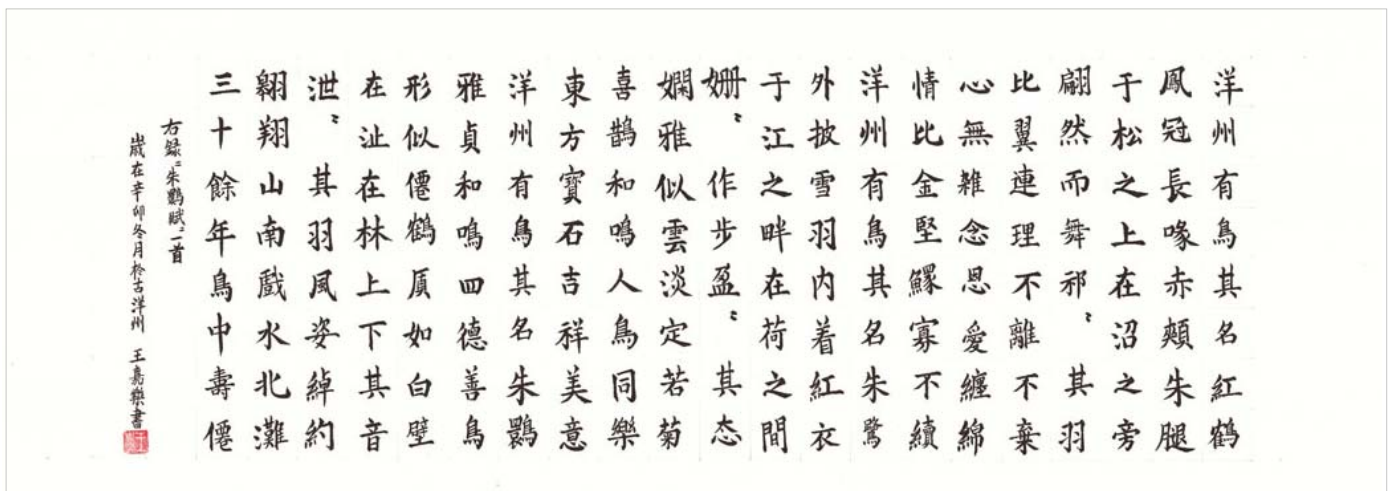 洋州有鳥其名紅鶴
鳳冠長喙赤頰朱腿
于松之上在沼之旁
翩然而舞祁〻其羽
比翼連理不離不棄
心無雜念恩愛纏綿
情比金堅鰥寡不續
洋州有鳥其名朱鷺
外披雪羽内着紅衣
于江之畔在荷之間
姍〻作步盈〻其态
嫻雅似雲淡定若菊
喜鵲和鳴人鳥同樂
東方寶石吉祥美意
洋州有鳥其名朱鹮
雅貞和鳴四德善鳥
形似僊鶴質如白璧
在沚在林上下其音
泄〻其羽風姿綽約
翱翔山南戲水北灘
三十餘年鳥中壽僊
右録〝朱鹮賦〞一首
歲在辛卯冬月於古洋州 王嘉樂書